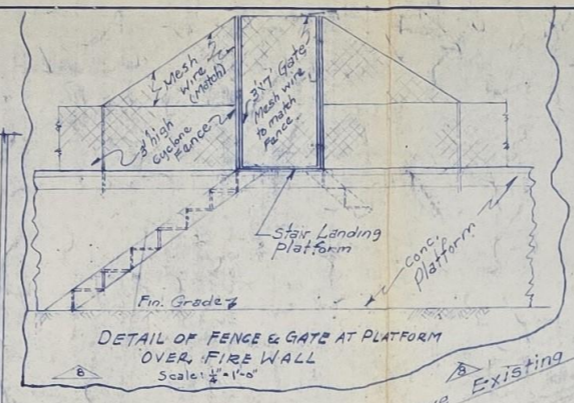 Mesh
Wire
(Match)
3' high
Cyclone
Fence
3x7 Gate
Mesh wire
to match
Fence
Stair Landing
Platform
Conc.
Platform
Fin. Grade
DETAIL OF FENCE & GATE AT PLATFORM
OVER FIRE WALL
Scale: 1/4" = 1'-0"
B
B
Existing